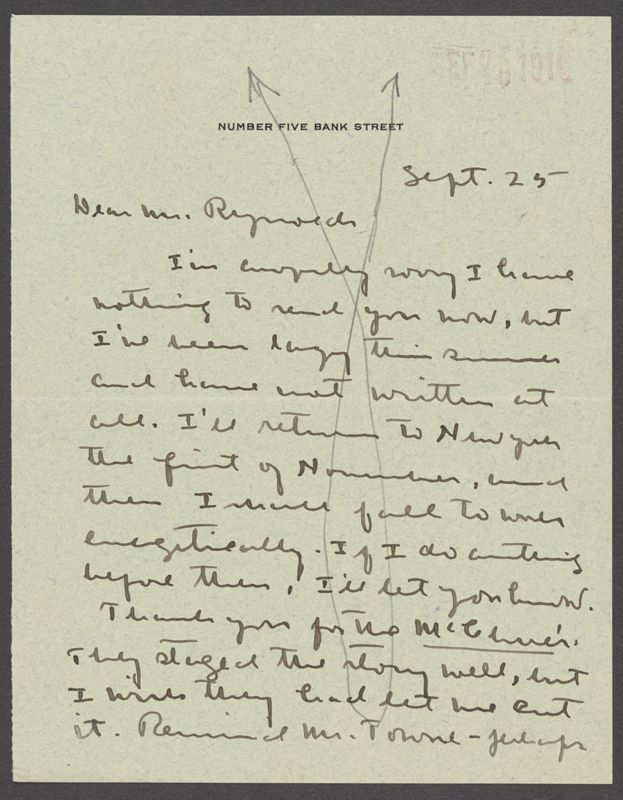 SEP 28 1918
NUMBER FIVE BANK STREET
Sept. 25
Dear Mr. Reynolds
I'm awfully sorry I have
nothing to send you now, but
I've been lazy this summer
and have not written at
all. I'll return to New York
the first of November, and
then I shall fall to work
energetically. If I do anything
before then, I'll let you know.
Thank you for the McClure's.
They staged the story well, but
I wish they had let me cut
it. Remind Mr. Towne - perhaps